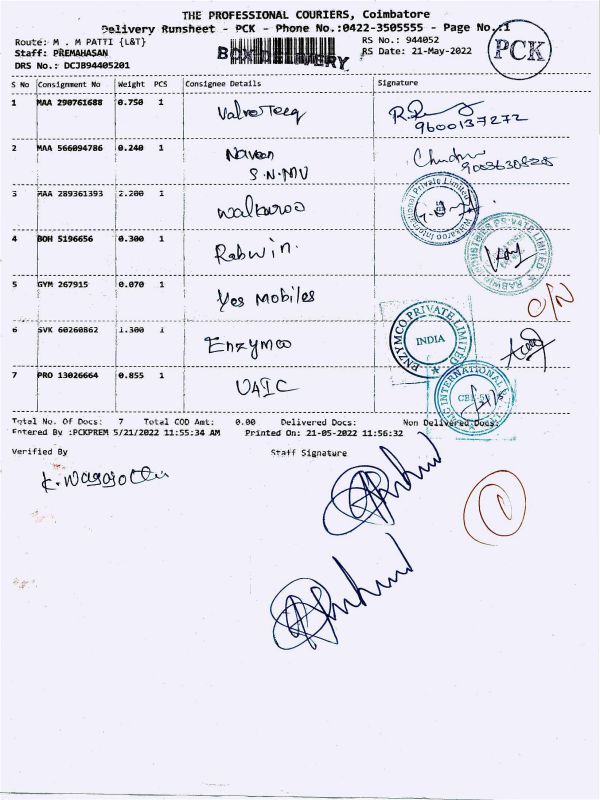 THE PROFESSIONAL COURIERS, Coimbatore
Delivery Runsheet - PCK - Phone No.:0422-3505555 - Page No.:1
Route: M . M PATTI {L&T} BOX DELIVERY RS No.: 944052 PCK
Staff: PREMAHASAN RS Date: 21-May-2022
DRS No.: DCJB94405201
S No Consignment No Weight PCS Consignee Details Signature
1 MAA 290761688 0.750 1
9600137272
2 MAA 566094786 0.240 1 Naveen
S.N.MV
3 MAA 289361393 2.200 1 Walkaroo Walkaroo International Private Limited
4 BOH 5196656 0.300 1 Rabwin. RABWIN INDUSTRIES PRIVATE LIMITED
5 GYM 267915 0.070 1 Yes Mobiles O/N
6 SVK 60260862 1.300 1 Enzymco ENZYMCO PRIVATE LIMITED INDIA
7 PRO 13026664 0.855 1 UAIC INTERNATIONAL
Total No. Of Docs: 7 Total COD Amt: 0.00 Delivered Docs: Non Delivered Docs:
Entered By :PCKPREM 5/21/2022 11:55:34 AM Printed On: 21-05-2022 11:56:32
Verified By Staff Signature